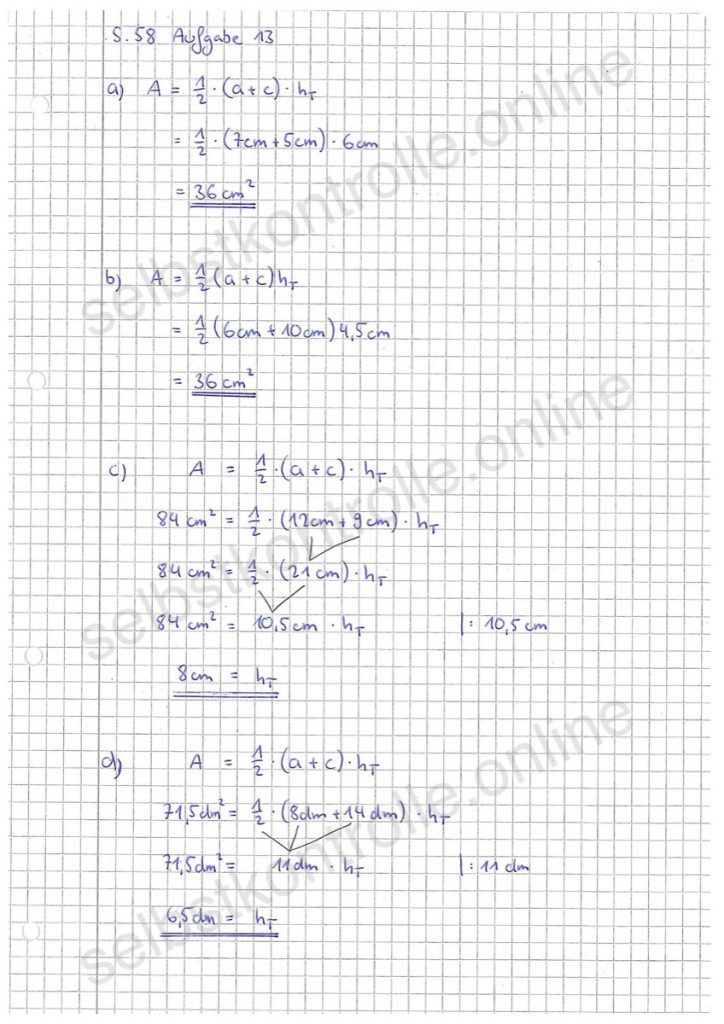 S. 58 Aufgabe 13
a) A = 1/2 · (a + c) · h_T
= 1/2 · (7cm + 5cm) · 6cm
= 36 cm²
b) A = 1/2 (a + c) h_T
= 1/2 (6cm + 10cm) 4,5cm
= 36 cm²
c) A = 1/2 · (a + c) · h_T
84 cm² = 1/2 · (12cm + 9cm) · h_T
84 cm² = 1/2 · (21cm) · h_T
84 cm² = 10,5cm · h_T |: 10,5cm
8cm = h_T
d) A = 1/2 · (a + c) · h_T
71,5dm² = 1/2 · (8dm + 14dm) · h_T
71,5dm² = 11dm · h_T |: 11dm
6,5dm = h_T
selbstkontrolle.online
selbstkontrolle.online
selbstkontrolle.online